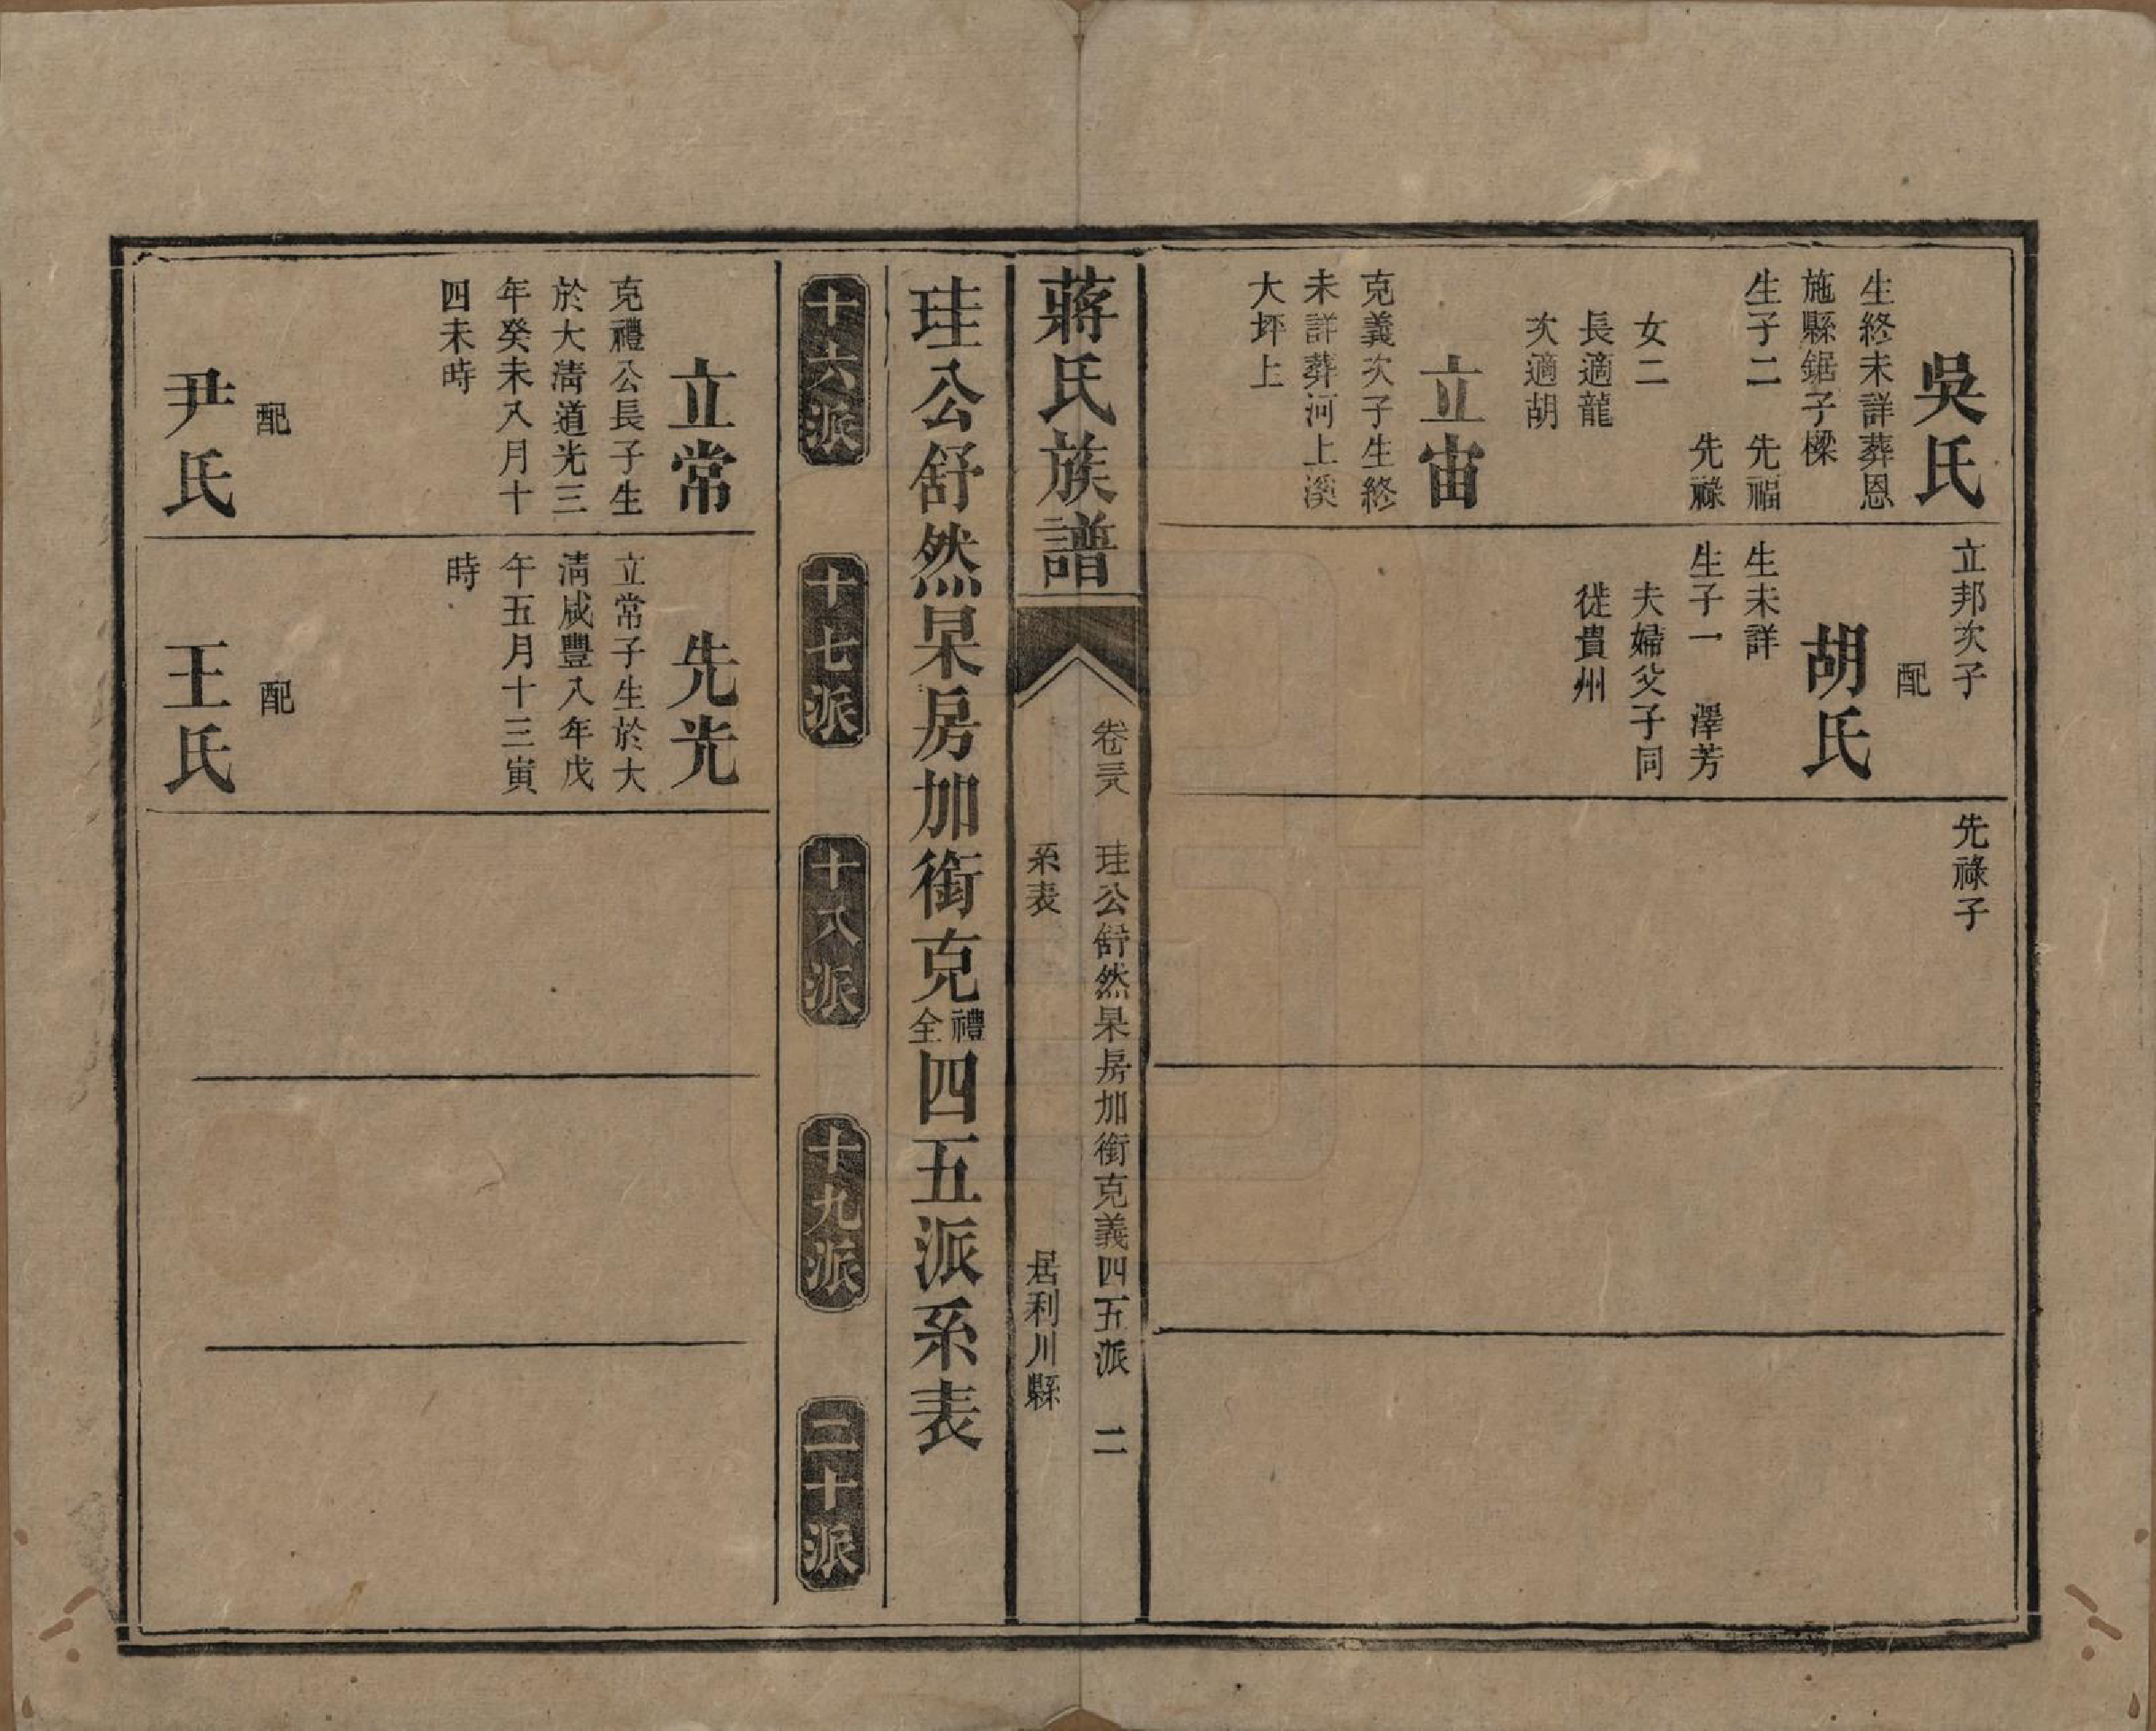 吳氏
生終未詳葬恩
施縣鋸子樑
生子二　先福
先祿
女二
長適龍
次適胡
立宙
克義次子生終
未詳葬河上溪
大坪上
立邦次子
配
胡氏
生未詳
生子一　澤芳
夫婦父子同
徙貴州
先祿子
蔣氏族譜
卷三八　珪公舒然杲房加銜克義四五派　二
系表　居利川縣
珪公舒然杲房加銜克禮全四五派系表
十六派
十七派
十八派
十九派
二十派
立常
克禮公長子生
於大清道光三
年癸未八月十
四未時
配
尹氏
先光
立常子生於大
清咸豐八年戊
午五月十三寅
時
配
王氏